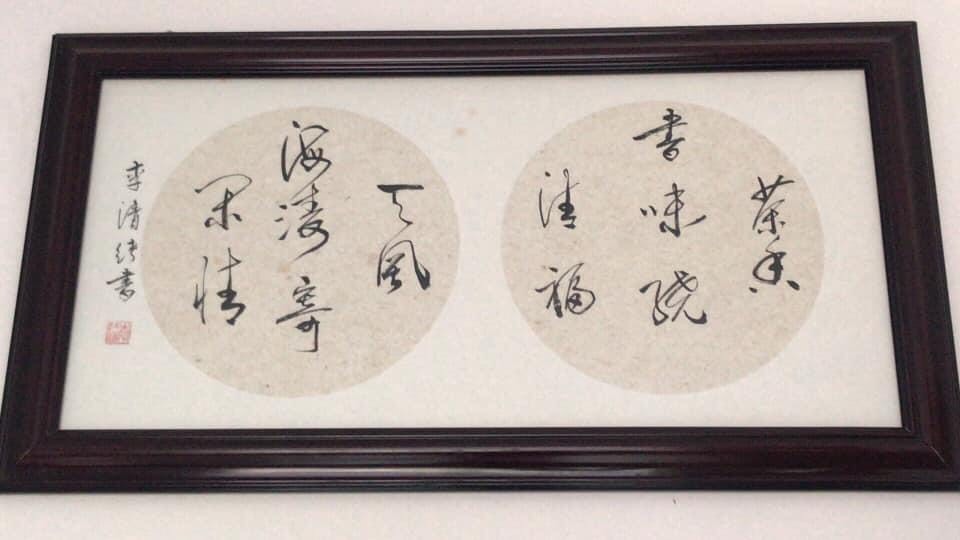 茶香
書味繞
清福
天風
海濤寄
閑情
李清書